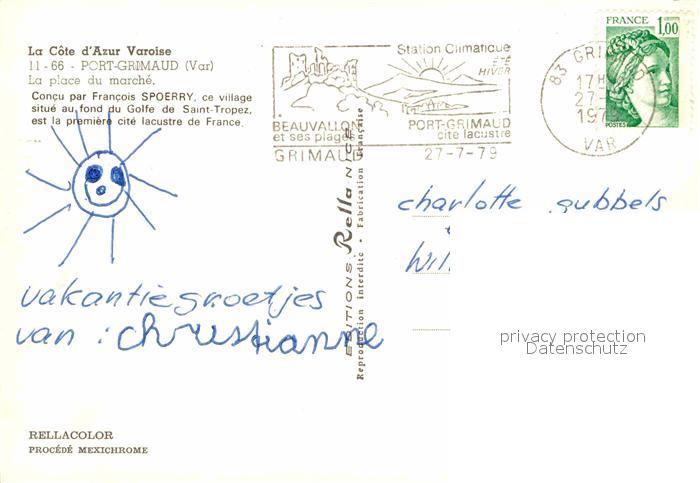 La Côte d'Azur Varoise
11-66 - PORT-GRIMAUD (Var)
La place du marché.
Conçu par François SPOERRY, ce village
situé au fond du Golfe de Saint-Tropez,
est la première cité lacustre de France.
Station Climatique
ÉTÉ
HIVER
BEAUVALLON
et ses plages
PORT-GRIMAUD
cité lacustre
GRIMAUD
27-7-79
83 GRI
17H
27-
197
VAR
FRANCE
1,00
POSTES
EDITIONS Rella NICE
Reproduction interdite • Fabrication Française
charlotte gubbels
vakantiegroetjes
van : christianne
privacy protection
Datenschutz
RELLACOLOR
PROCÉDÉ MEXICHROME